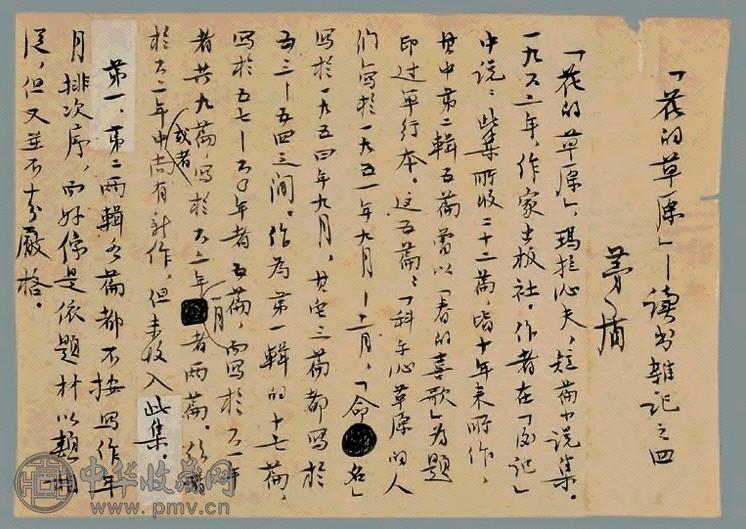 「花的草原」—读书杂记之四
茅盾
「花的草原」，玛拉沁夫，短篇小说集。
一九六二年，作家出版社。作者在「后记」
中说：此集所收二十二篇，皆十年来所作，
其中第二辑五篇曾以「春的喜歌」为题
印过单行本。这五篇：「科尔沁草原的人
们」写于一九五一年九月—十一月，「命名」
写于一九五四年九月，其它三篇都写于
五三—五四之间。作为第一辑的十七篇，
写于五七—六〇年者五篇，而写于六一年
者共九篇，写于六二年一月者两篇。作者
或者
于六二年中尚有新作，但未收入此集。
第一、第二两辑各篇都不按写作年
月排次序，而好像是依题材以类相
从，但又并不十分严格。
中华收藏网
www.pmv.cn